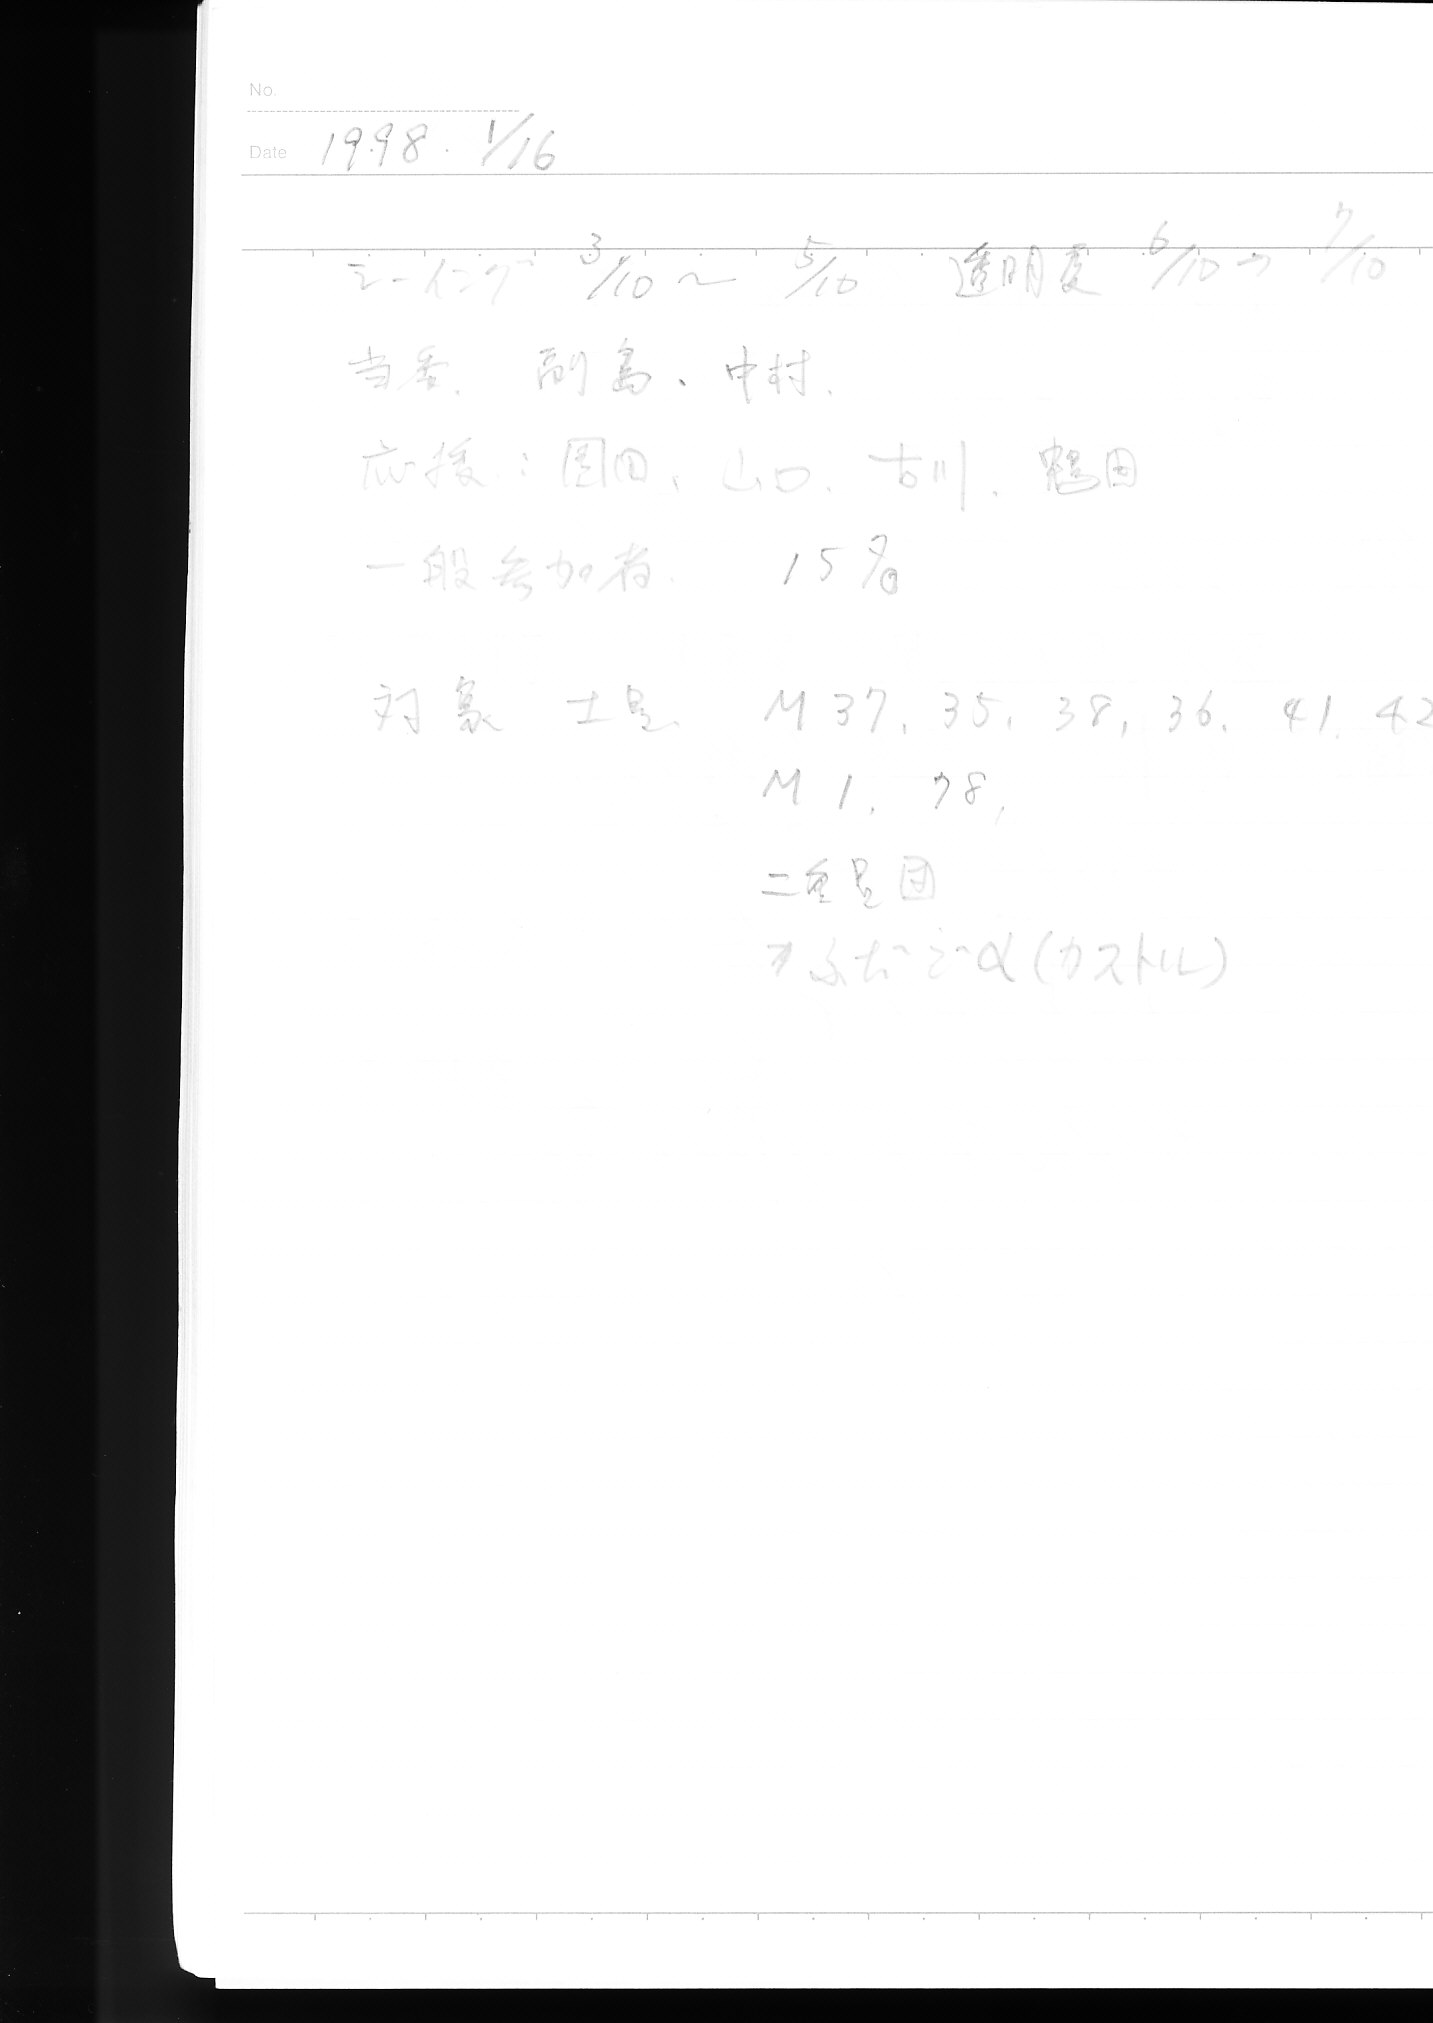 No.
Date 1998. 1/16
シーイング 3/10 ~ 5/10 透明度 6/10 → 7/10
当番. 副島、中村.
応援:園田、山口、古川、鶴田
一般参加者. 15名
対象 土星. M 37, 35, 38, 36, 41, 42
M 1, 78,
二重星団
ふたござα(カストル)